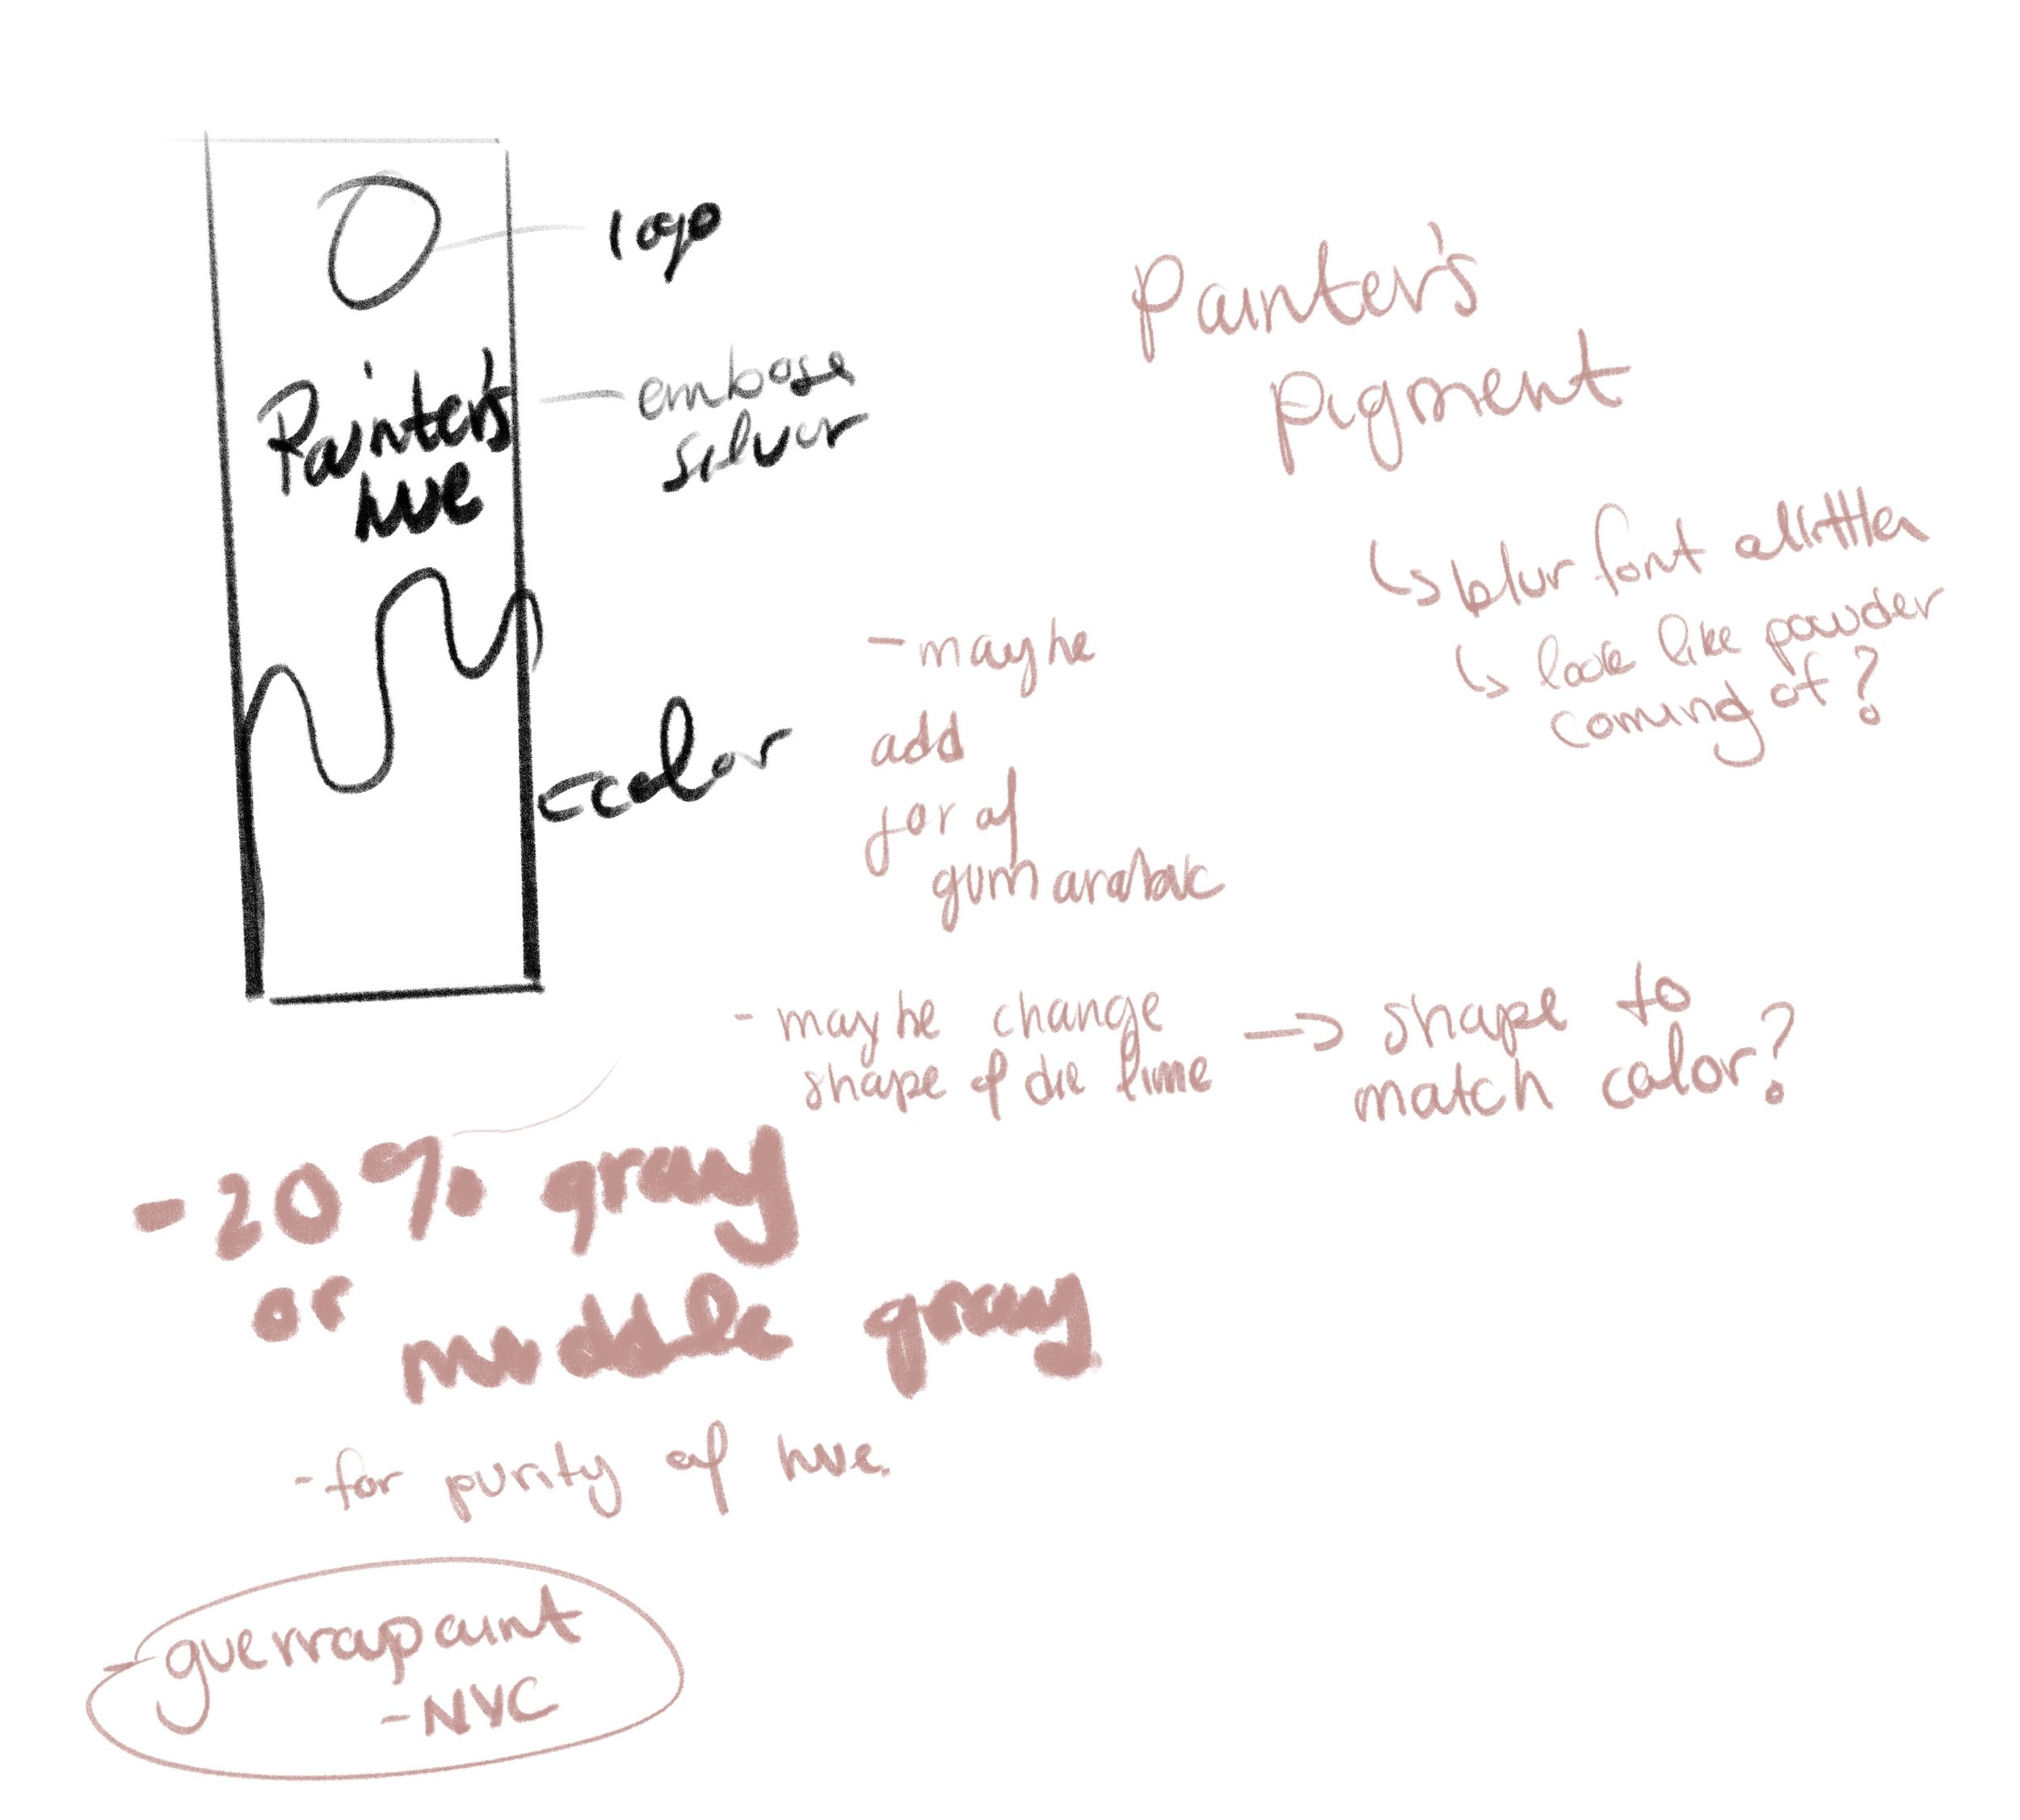 logo
Painter's
hue
- embose
silver
- color
Painter's
pigment
↳ blur font alittler
↳ look like powder
coming of?
- maybe
add
jar of
gum arabic
- maybe change
shape of die lime
→ shape to
match color?
- 20% gray
or middle gray
- for purity of hue.
- guerrapaint
- NYC